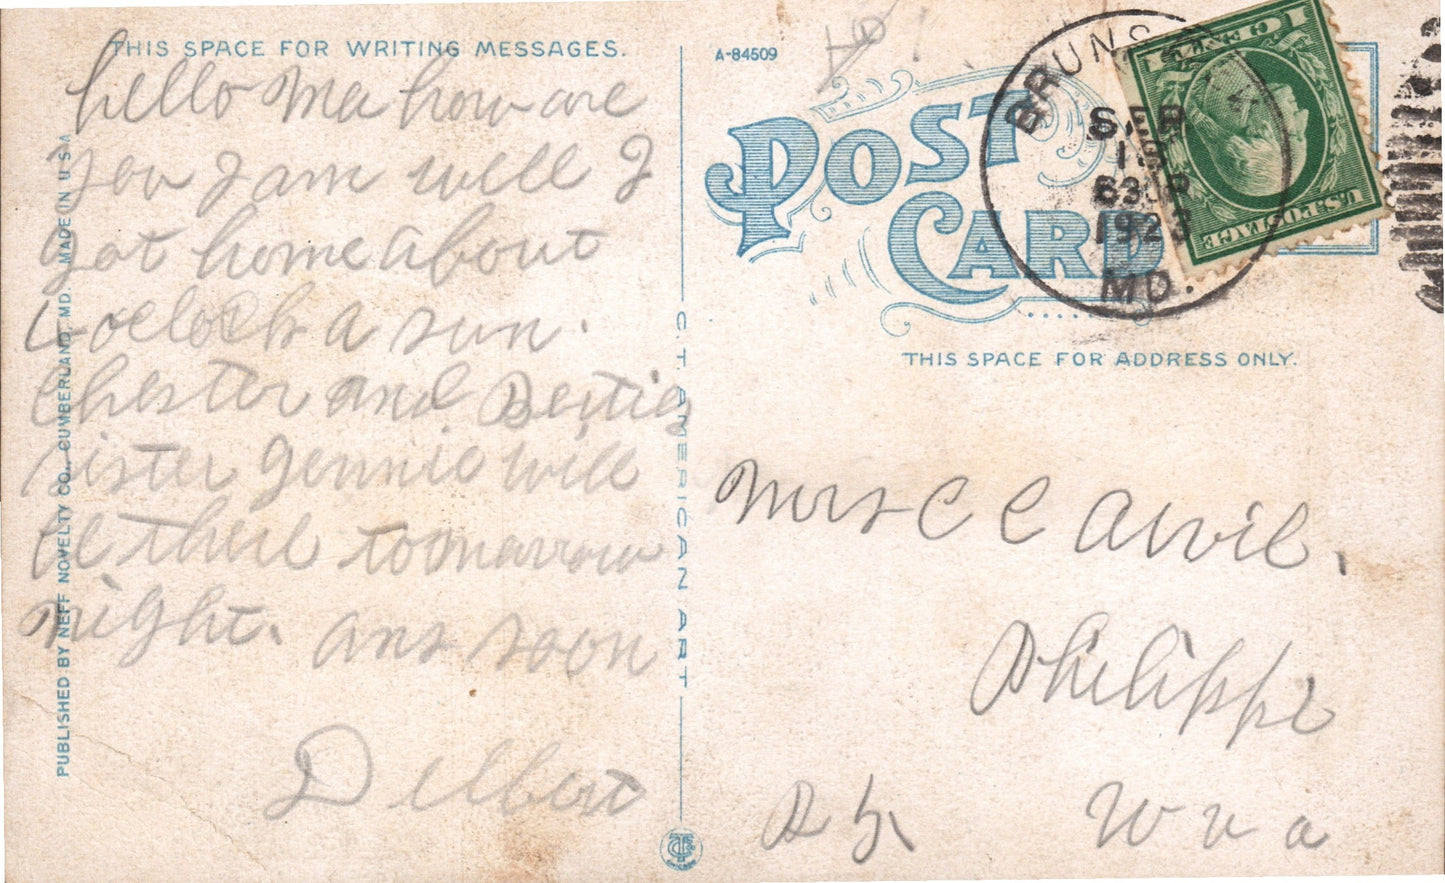 THIS SPACE FOR WRITING MESSAGES.
hello Ma how are
you I am well I
got home about
oclock a sun.
Chester and Berties
sister Jennie will
be there tomarrow
night. ans soon
Delbert
PUBLISHED BY NEFF NOVELTY CO., CUMBERLAND, MD. MADE IN U S A
C. T. AMERICAN ART
CHICAGO
A-84509
POST
CARD
BRUNSWICK
SEP
630P
1923
MD.
U.S. POSTAGE
1 CENT 1
THIS SPACE FOR ADDRESS ONLY.
Mrs C C Arvil.
Philippi
W va